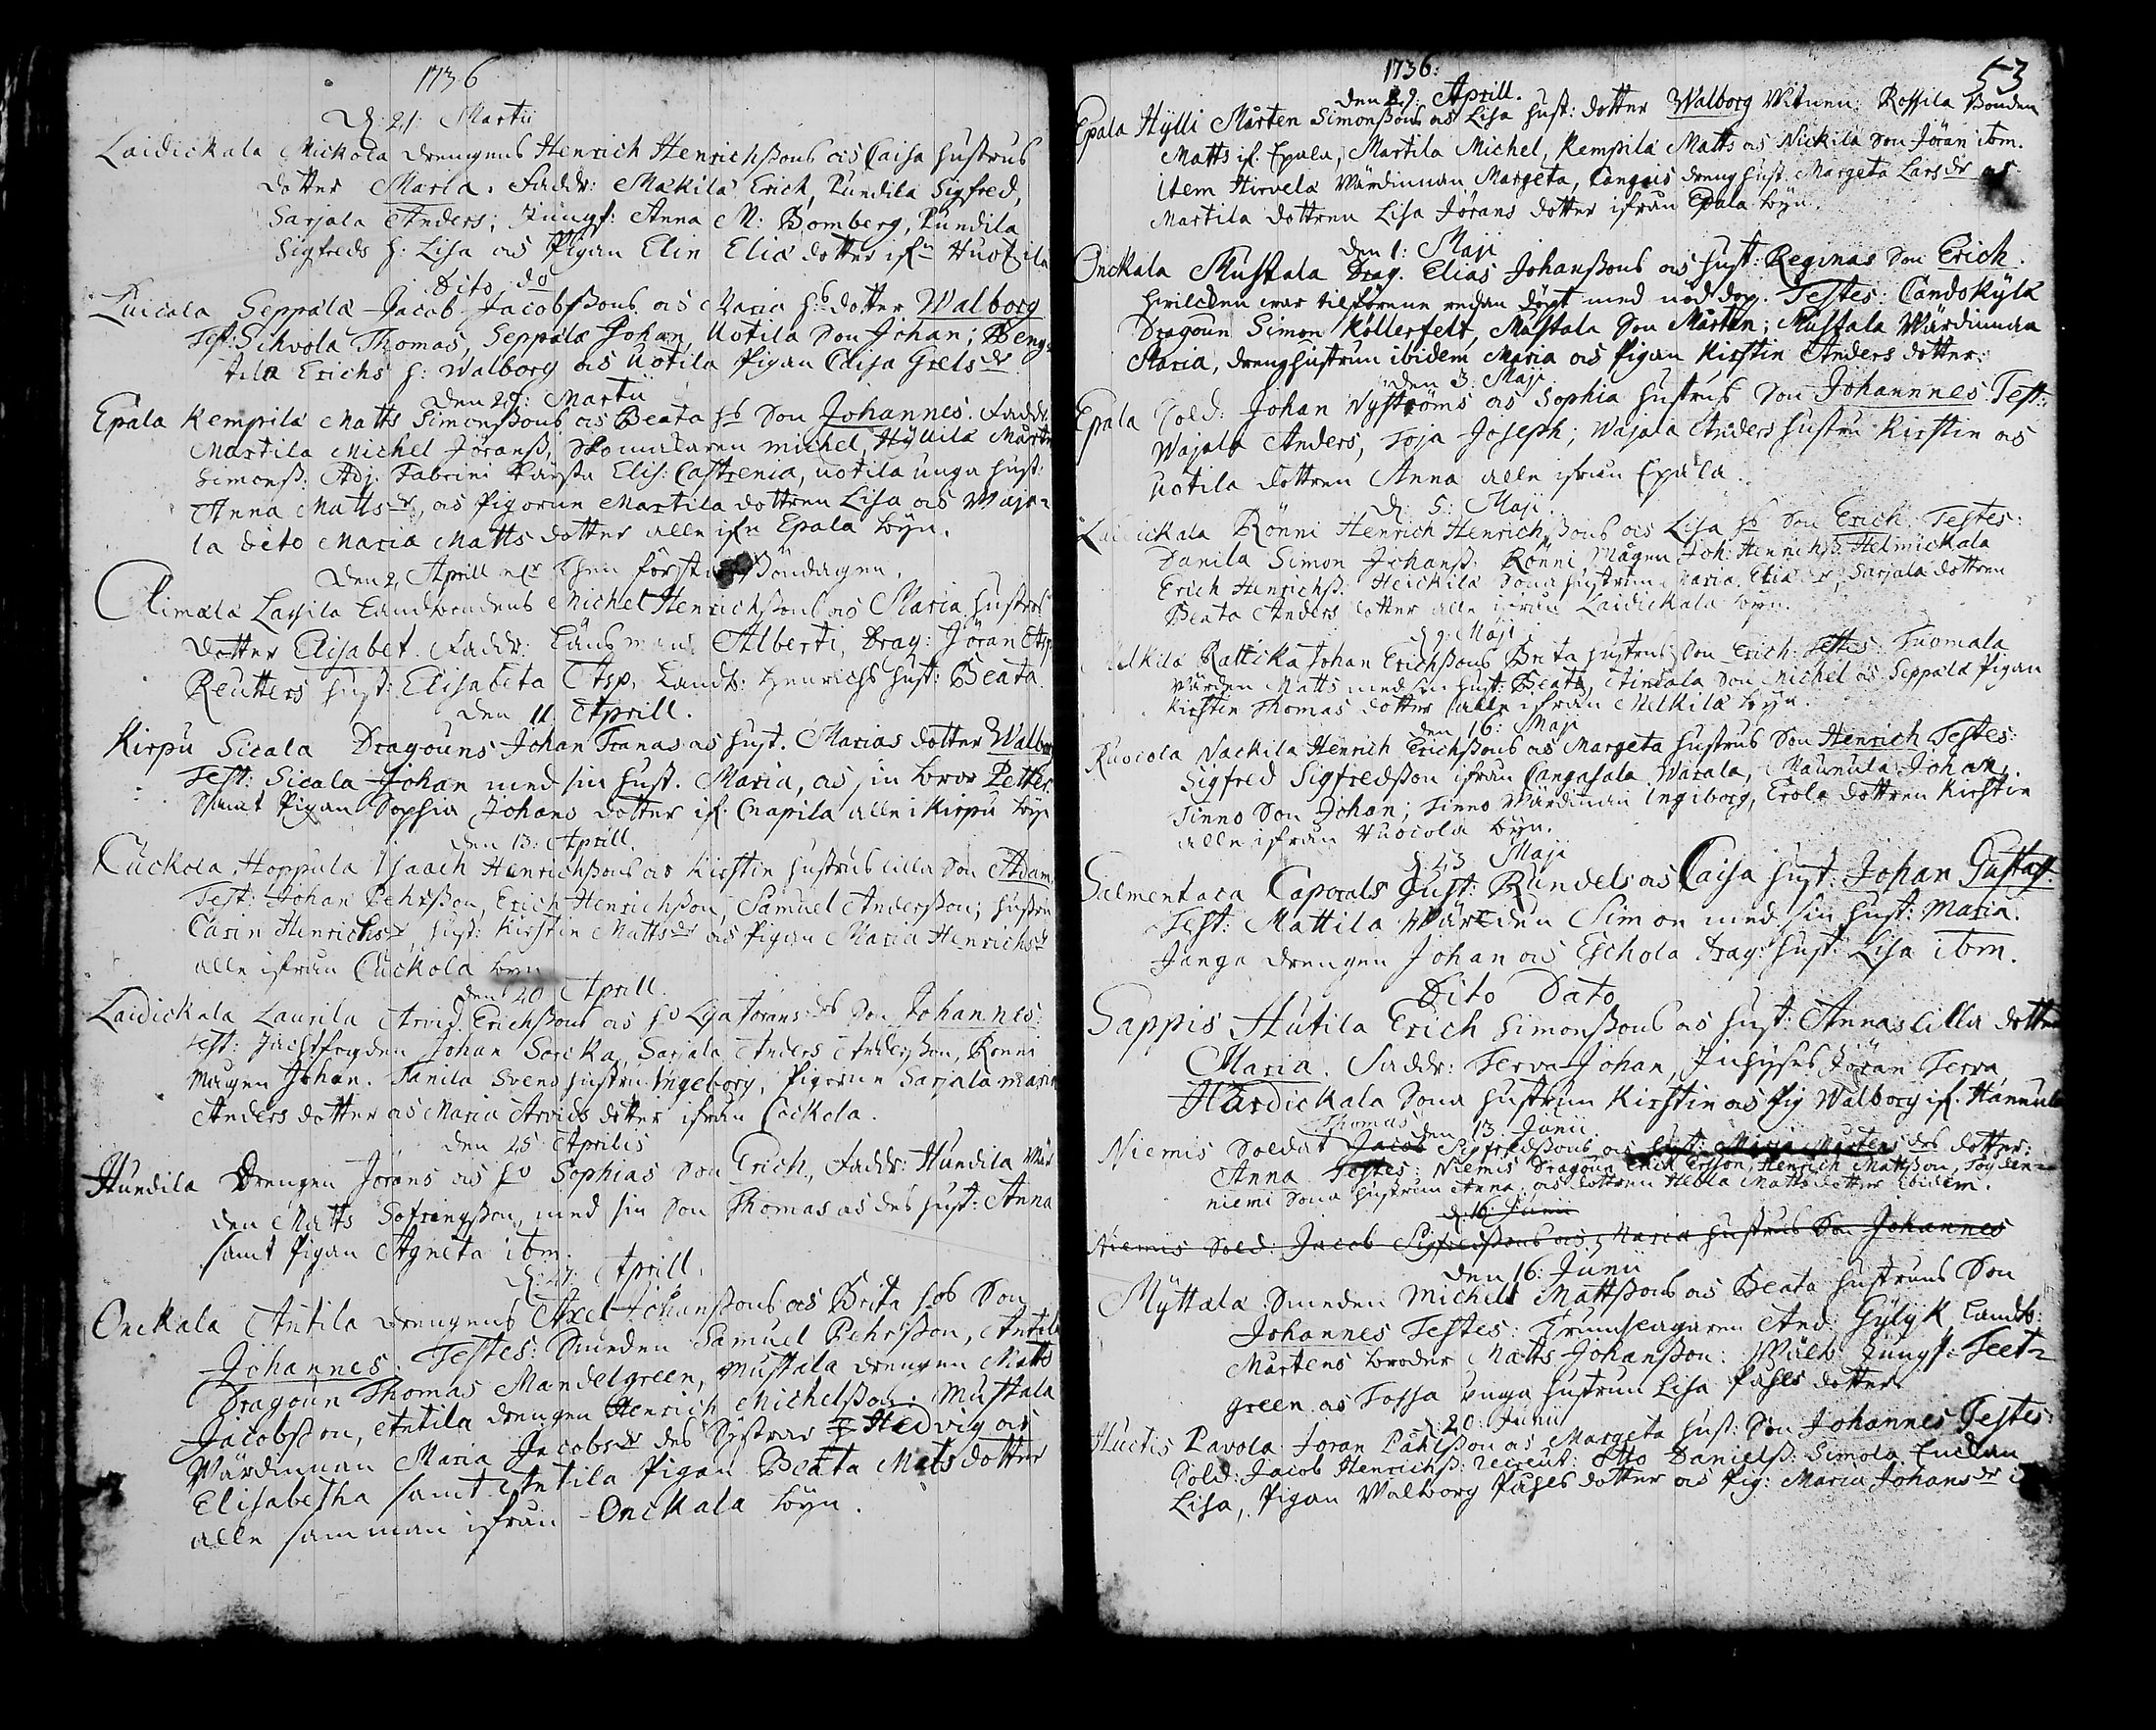 1736
D. 21. Martii
Laidickala Mickola drengens Henrich Henrichßons os Caisa hustrus
dotter Maria. Faddr: Mäkilä Erich, Pundila Sigfred,
Sarjala Anders; Jungf: Anna M: Bomberg, Pundila
Sigfreds h: Lisa os Pigan Elin Eliæ dotter ifn Huotila
Dito do
Luicala Seppälä Jacob Jacobßons os Maria hs dotter Walborg
Test: Sihvola Thomas, Seppälä Johan, Uotila Son Johan; Beng-
tila Erichs h: Walborg os Uotila Pigan Caisa Grels dr
Den 28: Martii
Epala Kempila Matts Simonßons os Beata hs Son Johannes. Faddr
Martila Michel Jöranß, Skomakaren Michel, Hyllilä Mårten
Simonß. Adj. Fabrini Käresta Elis: Castrenia, Uotila unga hust:
Anna Matts dr, os Pigorne Martila dottren Lisa os Waja-
la dito Maria Matts dotter alle ifn Epala byn.
Den 2 Aprill elr then första Söndagen.
Alimala Lassila Landbondens Michel Henrichßons os Maria hustrus
dotter Elisabet. Faddr: Länsmans Alberti, Drag: Jöran Asp
Reutters hust: Elisabeta Asp, Landb: Henrichs hust: Beata.
Den 11 Aprill.
Kirpu Sicala Dragouns Johan Franas os hust. Marias dotter Walbor
Test: Sicala Johan med sin hust. Maria, os sin bror Petter
Samt Pigan Sophia Johans dotter if. Cnapila alle i Kirpu byn
Den 13: Aprill.
Cuckola Hoppula Isaach Henrichßons os Kirstin hustrus lilla Son Adam
Test: Johan Pehrßon, Erich Henrichßon, Samuel Anderßon; hustru
Carin Henrichsdr, hust: Kirstin Mattsdr os Pigan Maria Henrichsdr
alle ifrån Cuckola byn
Den 20 Aprill.
Laidickala Laurila Arvid Erichßons os ho Lisa Jörans drs Son Johannes:
Test: Jachtfogden Johan Soricka, Sarjala Anders Anderßon, Rönni
Mågen Johan. Tanila Svens hustru Ingeborg, Pigorne Sarjala Maria
Anders dotter os Maria Arvids dotter ifrån Cockola.
Den 25 Aprilis
Hundila Drengen Jörans os ho Sophias Son Erich, Faddr: Hundila Wär
den Matts Sofringßon med sin Son Thomas os des hust: Anna
samt Pigan Agneta ibm.
D. 27. Aprill.
Onckala Antila drengens Axel Johanßons os Brita hos Son
Johannes. Testes: Smeden Samuel Pehrßon, Antila
Dragoun Thomas Mandelgreen, Mustala drengen Matts
Jacobßon, Antila drengen Henrich Michelßon. Mustala
Wärdinnan Maria Jacobsdr des Systrar Hedvig os
Elisabetha samt Antila Pigan Beata Mats dotter
alle samman ifrån Onckala byn.
1736:
53
Den 29. Aprill.
Epala Hylli Mårten Simonßons os Lisa hust: dotter Walborg Witnen: Rossila Bonden
Matts if. Epala, Martila Michel, Kempila Matts os Nickilä Son Jöran ibm.
item Hirvelä Wärdinnan Margeta, Cangais dreng hust. Margeta Larsdr os
Martila dottren Lisa Jörans dotter ifrån Epala byn.
Den 1: Maji
Onckala Mustala Drag. Elias Johanßons os hust: Reginas Son Erich.
hvilcken war tilförene redan döpt med nöddop. Testes: Candokylä
Dragoun Simon Köllerfelt, Mustala Son Mårten; Mustala Wärdinnan
Maria, drenghustrun ibidem Maria os Pigan Kirstin Anders dotter.
Den 3: Maji
Epala Sold: Johan Nyströms os Sophia hustrus Son Johannnes. Test:
Wajala Anders, Toja Joseph; Wajala Anders hustru Kirstin os
Uotila dottren Anna alle ifrån Epala.
D. 5: Maji.
Laidickala Rönni Henrich Henrichßons os Lisa hs Son Erich. Testes:
Danila Simon Johanß. Rönni Mågen Joh: Henrichß. Helmickala
Erich Henrichß. Heickilä Sona hustrun Maria Eliædr, Sarjala dottren
Beata Anders dotter alle ifrån Laidickala byn.
D. 9. Maji
Melkilä Rattika Johan Erichßons Brita hustrus Son Erich: Testes: Tuomala
Wärden Matts med sin hust: Beata, Airicala Son Michel os Seppälä Pigan
Kirstin Thomas dotter alle ifrån Melkilä byn.
Den 16: Maji
Ruocola Nackila Henrich Erichßons os Margeta hustrus Son Henrich Testes:
Sigfred Sigfredßon ifrån Cangasala Warala, Maunula Johan,
Sinno Son Johan; Sinno Wärdinnan Ingiborg, Erola dottren Kirstin
alle ifrån Huocola byn.
D. 23 Maji
Salmentaca Caporals Gust: Rundels os Caisa hust: Johan Gustaf.
Test: Mattila Wärden Simon med sin hust: Maria.
Janga drengen Johan os Eschola Drag: hust: Lisa ibm.
Dito Dato
Sappis Hutila Erich Simonßons os hust: Annas lilla dotter
Maria. Faddr: Terva Johan, Inhyses Jöran Terva
Hardickala Sona hustrun Kirstin os Pig Walborg if. Hannula
Den 13 Junii
Thomas
Niemis Soldat Jacob Sigfredßons os hust: Maria Mårtens drs dotter:
Anna Testes: Niemis Dragoun Erick Ersson, Henrich Mattßon, Töyden-
niemi Sona hustrun Anna os dottren Hebla Matts dotter ibidem.
D. 16 Junii
Niemis Sold: Jacob Sigfredßons os Maria hustrus Son Johannes
Den 16: Junii
Myttala Smeden Michels Mattßons os Beata hustruns Son
Johannes Testes: Trumslagaren And: Gylyk, Landb:
Mårtens broder Matts Johanßon: Wälb Jungf: Teet-
green os Tossa Unga hustrun Lisa Påhls dotter
D. 20: Junii
Huctis Pavola Jöran Påhlßon os Margeta hust: Son Johannes Testes:
Sold: Jacob Henrichß: recreut: Otto Danielß: Simola Enckan
Lisa, Pigan Walborg Påhls dotter os Pig: Maria Johansdr